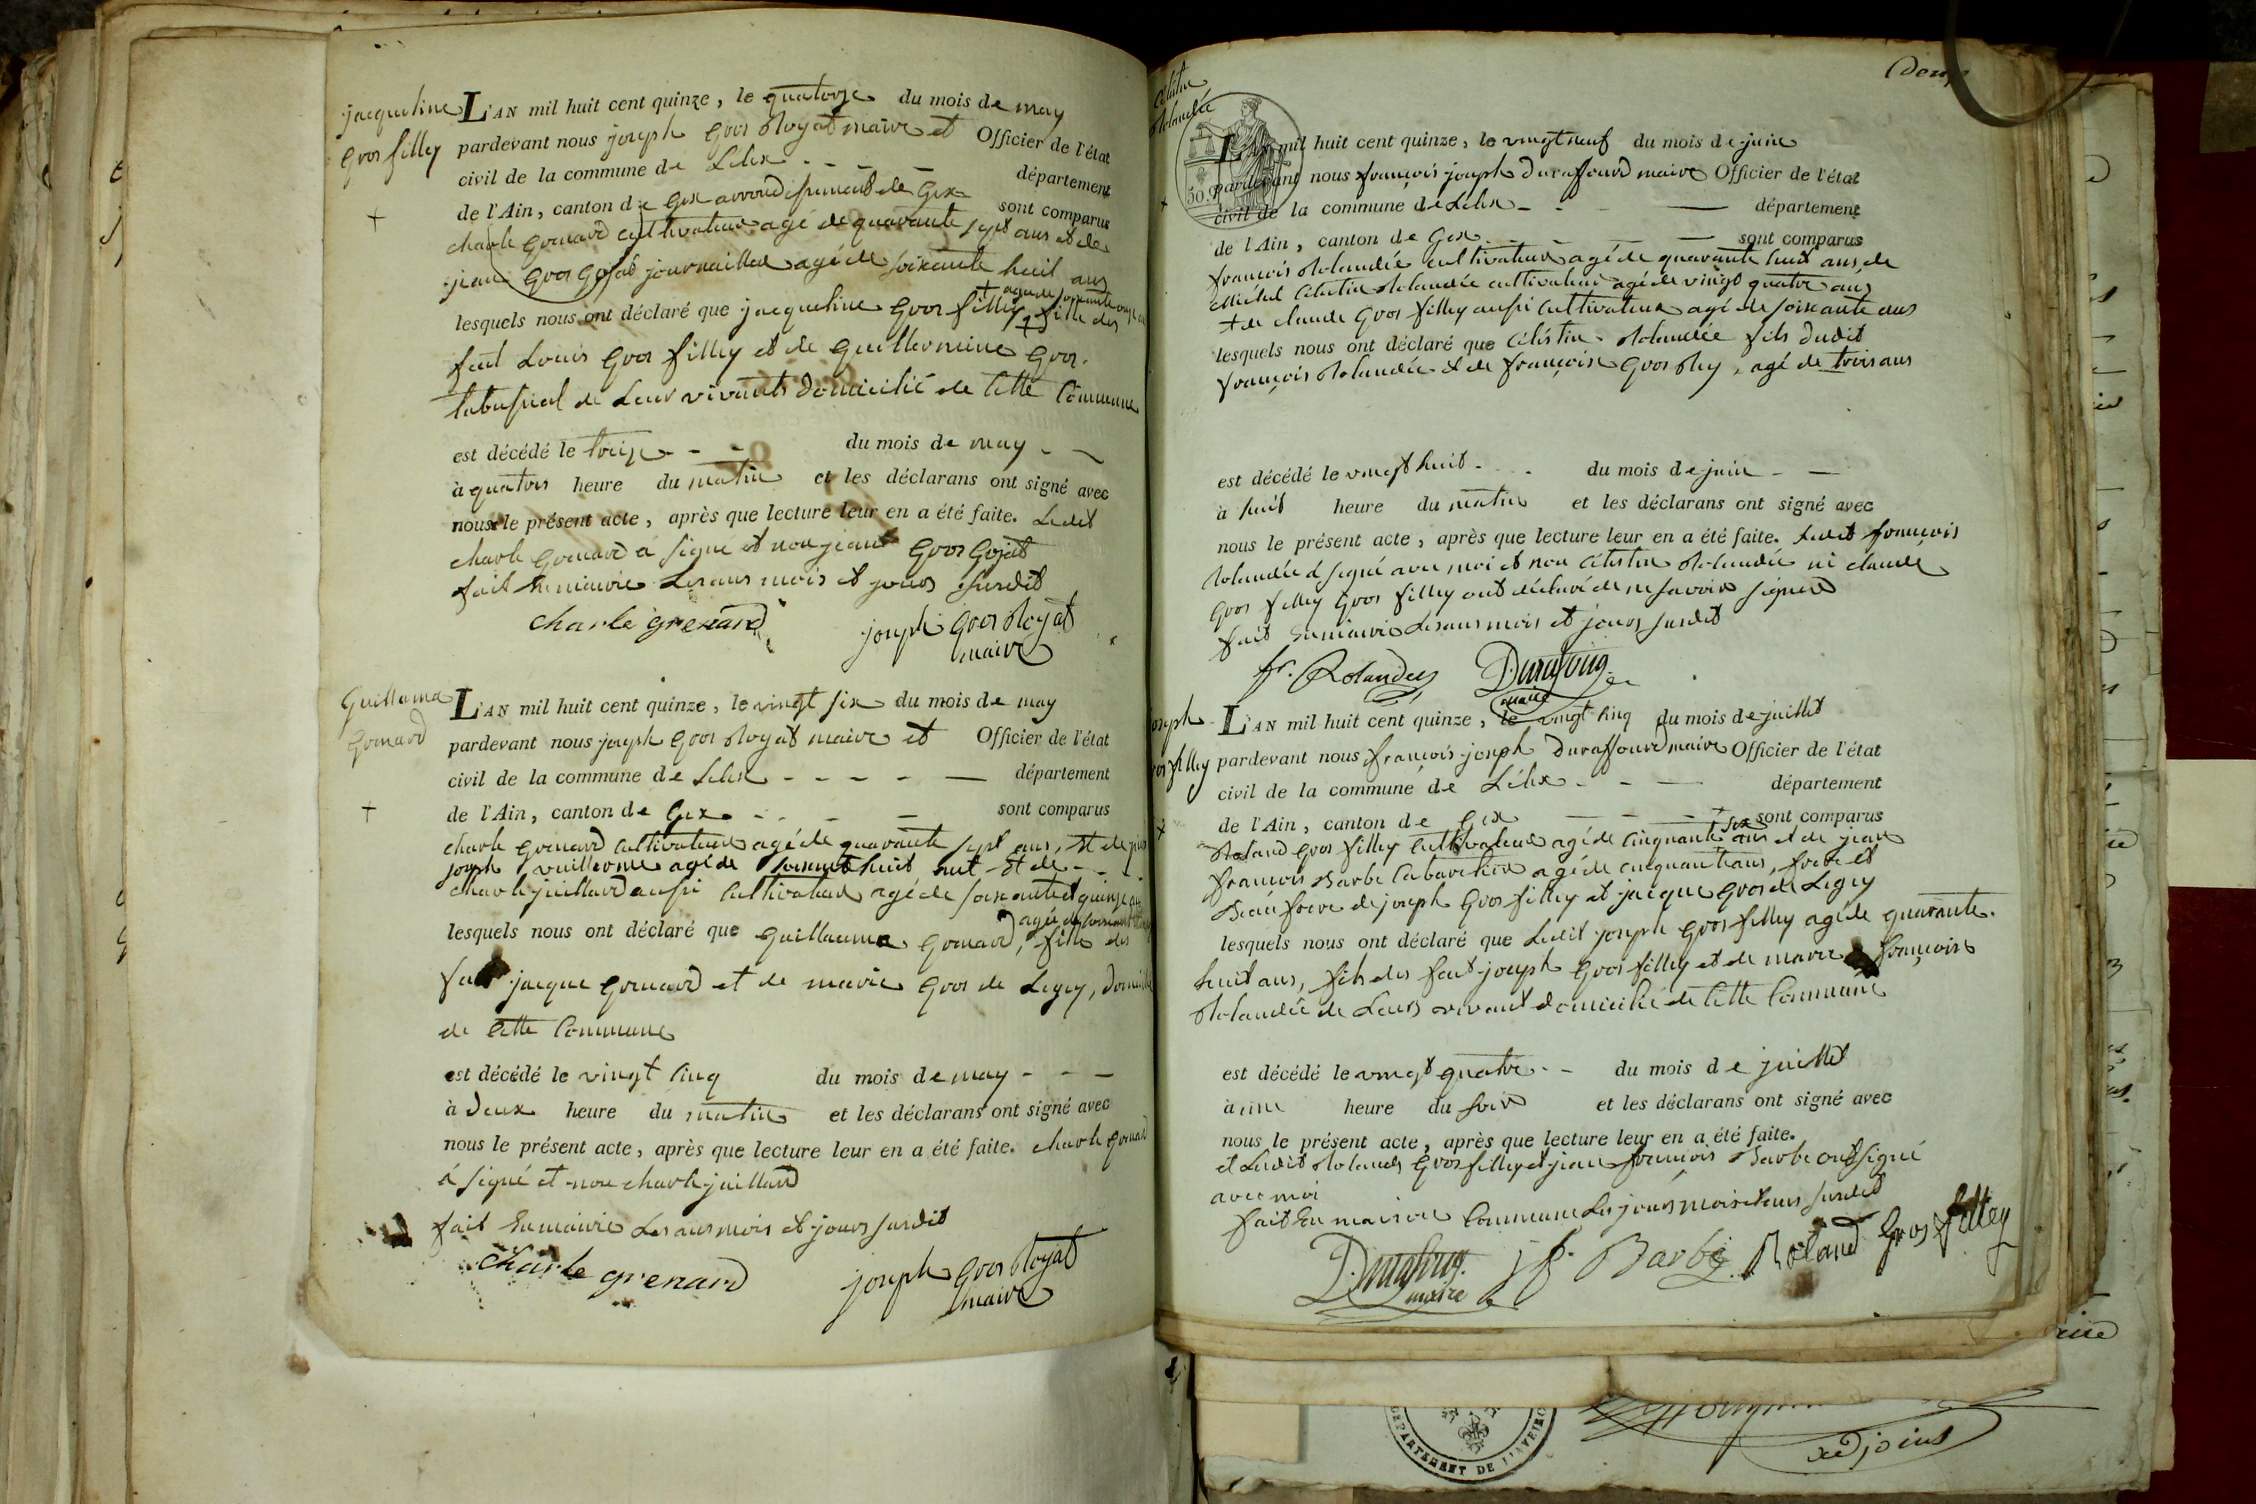 jacqueline
gros filley
L'AN mil huit cent quinze, le quatorze du mois de may
pardevant nous joseph gros Royat maire et Officier de l'état
civil de la commune de Lelex - - - département
de l'Ain, canton de Gex arrondissement de Gex sont comparus
charle grenard cultivateur agé de quarante sept ans et de
jean gros gojat journaillez agé de soixante huit ans
+ agée de soixante
lesquels nous ont déclaré que jacqueline gros filley + fille des
feut Louis gros filley et de guillermine gros
de Leur vivants domicilié de cette commune
est décédé le treize - - - du mois de may - -
à quatres heure du matin et les déclarans ont signé avec
nous le présent acte, après que lecture leur en a été faite. Ledit
charle grenard a signé et non jean gros gojat
fait En mairie Les ans mois et jours susdit
charle grenard joseph gros Royat
maire
guillauma
grenard
L'AN mil huit cent quinze, le vingt six du mois de may
pardevant nous joseph gros Royat maire et Officier de l'état
civil de la commune de Lelex - - - - département
de l'Ain, canton de Gex - - - sont comparus
charle grenard cultivateur agé de quarante sept ans, et de
joseph vuillerme agé de soixante huit ant et de - -
charle juillard aussi cultivateur agé de soixante et quinze
agée de soixante
lesquels nous ont déclaré que guillauma grenard, fille des
jacque grenard et de marie gros de Legey,
de cette commune
est décédé le vingt cinq du mois de may - - -
à deux heure du matin et les déclarans ont signé avec
nous le présent acte, après que lecture leur en a été faite. charle grenard
a signé et non charle juillard
fait En mairie Les ans mois et jours susdit
charle grenard joseph gros Royat
maire
Rolandée
50.
L'AN mil huit cent quinze, le vingt neuf du mois de juin
pardevant nous françois joseph Duraffourd maire Officier de l'état
civil de la commune de Lélex - - - département
de l'Ain, canton de Gex - - - sont comparus
françois Rolandée cultivateur agé de quarante huit ans, de
Célestin Rolandée cultivateur agé de vingt quatre ans
+ de claude Gros filley aussi cultivateur agé de soixante ans
lesquels nous ont déclaré que Célestin Rolandée fils dudit
françois Rolandée et de françoise Gros , agé de trois ans
est décédé le vingt huit - - du mois de juin - -
à huit heure du matin et les déclarans ont signé avec
nous le présent acte, après que lecture leur en a été faite. Ledit françois
Rolandée a signé avec moi et non Célestin Rolandée ni claude
Gros filley Gros filley ont déclaré de ne savoir signer
fait En mairie Les ans mois et jours susdit
fr. Rolandez Durafourg
maire
joseph
gros filley
L'AN mil huit cent quinze, le vingt cinq du mois de juillet
pardevant nous françois joseph Duraffourd maire Officier de l'état
civil de la commune de Lélex - - - département
de l'Ain, canton de Gex - - - sont comparus
+ six
Roland gros filley cultivateur agé de cinquante ans et de jean
françois Barbe Cabaretier agé de cinquante ans, frere et
Beau frere de joseph Gros filley et jacque gros de Legey
lesquels nous ont déclaré que Ledit joseph gros filley agé de quarante
huit ans, fils des feut joseph gros filley et de marie françoise
Rolandée de Leurs vivant domicilié de cette Commune
est décédé le vingt quatre - - du mois de juillet
à une heure du soir et les déclarans ont signé avec
nous le présent acte, après que lecture leur en a été faite.
et Ledit Roland Gros filley et jean françois Barbe ont signé
avec moi
fait En maison Commune Les jours mois et ans susdit
Durafourg jf. Barbe Roland Gros filley
maire
DEPARTEMENT DE L'AVEYRON
adjoint